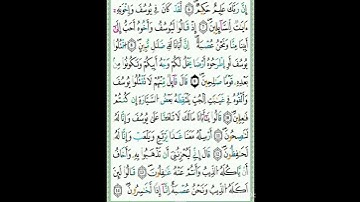 إِنَّ رَبَّكَ عَلِيمٌ حَكِيمٌ ۝ لَّقَدْ كَانَ فِي يُوسُفَ وَإِخْوَتِهِ
ءَايَٰتٌ لِّلسَّآئِلِينَ ۝ إِذْ قَالُوا لَيُوسُفُ وَأَخُوهُ أَحَبُّ إِلَىٰ
أَبِينَا مِنَّا وَنَحْنُ عُصْبَةٌ إِنَّ أَبَانَا لَفِي ضَلَٰلٍ مُّبِينٍ ۝ اقْتُلُوا
يُوسُفَ أَوِ اطْرَحُوهُ أَرْضًا يَخْلُ لَكُمْ وَجْهُ أَبِيكُمْ وَتَكُونُوا مِن
بَعْدِهِ قَوْمًا صَٰلِحِينَ ۝ قَالَ قَآئِلٌ مِّنْهُمْ لَا تَقْتُلُوا يُوسُفَ
وَأَلْقُوهُ فِي غَيَٰبَٰتِ الْجُبِّ يَلْتَقِطْهُ بَعْضُ السَّيَّارَةِ إِن كُنتُمْ
فَٰعِلِينَ ۝ قَالُوا يَٰأَبَانَا مَا لَكَ لَا تَأْمَنَّا عَلَىٰ يُوسُفَ وَإِنَّا لَهُ
لَنَٰصِحُونَ ۝ أَرْسِلْهُ مَعَنَا غَدًا يَرْتَعِ وَيَلْعَبْ وَإِنَّا لَهُ
لَحَٰفِظُونَ ۝ قَالَ إِنِّي لَيُحْزِنُنِي أَن تَذْهَبُوا بِهِ وَأَخَافُ
أَن يَأْكُلَهُ الذِّيبُ وَأَنتُمْ عَنْهُ غَٰفِلُونَ ۝ قَالُوا لَئِنْ
أَكَلَهُ الذِّيبُ وَنَحْنُ عُصْبَةٌ إِنَّا إِذًا لَّخَٰسِرُونَ ۝